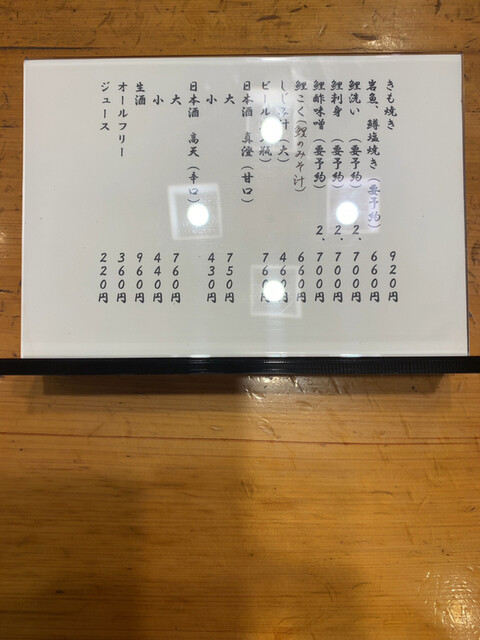 きも焼き 920円
岩魚、鱒塩焼き(要予約) 660円
鯉洗い (要予約) 2、700円
鯉刺身 (要予約) 2、700円
鯉酢味噌 (要予約) 2、700円
鯉こく(鯉のみそ汁) 660円
しじみ汁(大) 460円
ビール(大瓶) 760円
日本酒 真澄(甘口)
大 750円
小 430円
日本酒 高天(辛口)
大 760円
小 440円
生酒 960円
オールフリー 360円
ジュース 220円